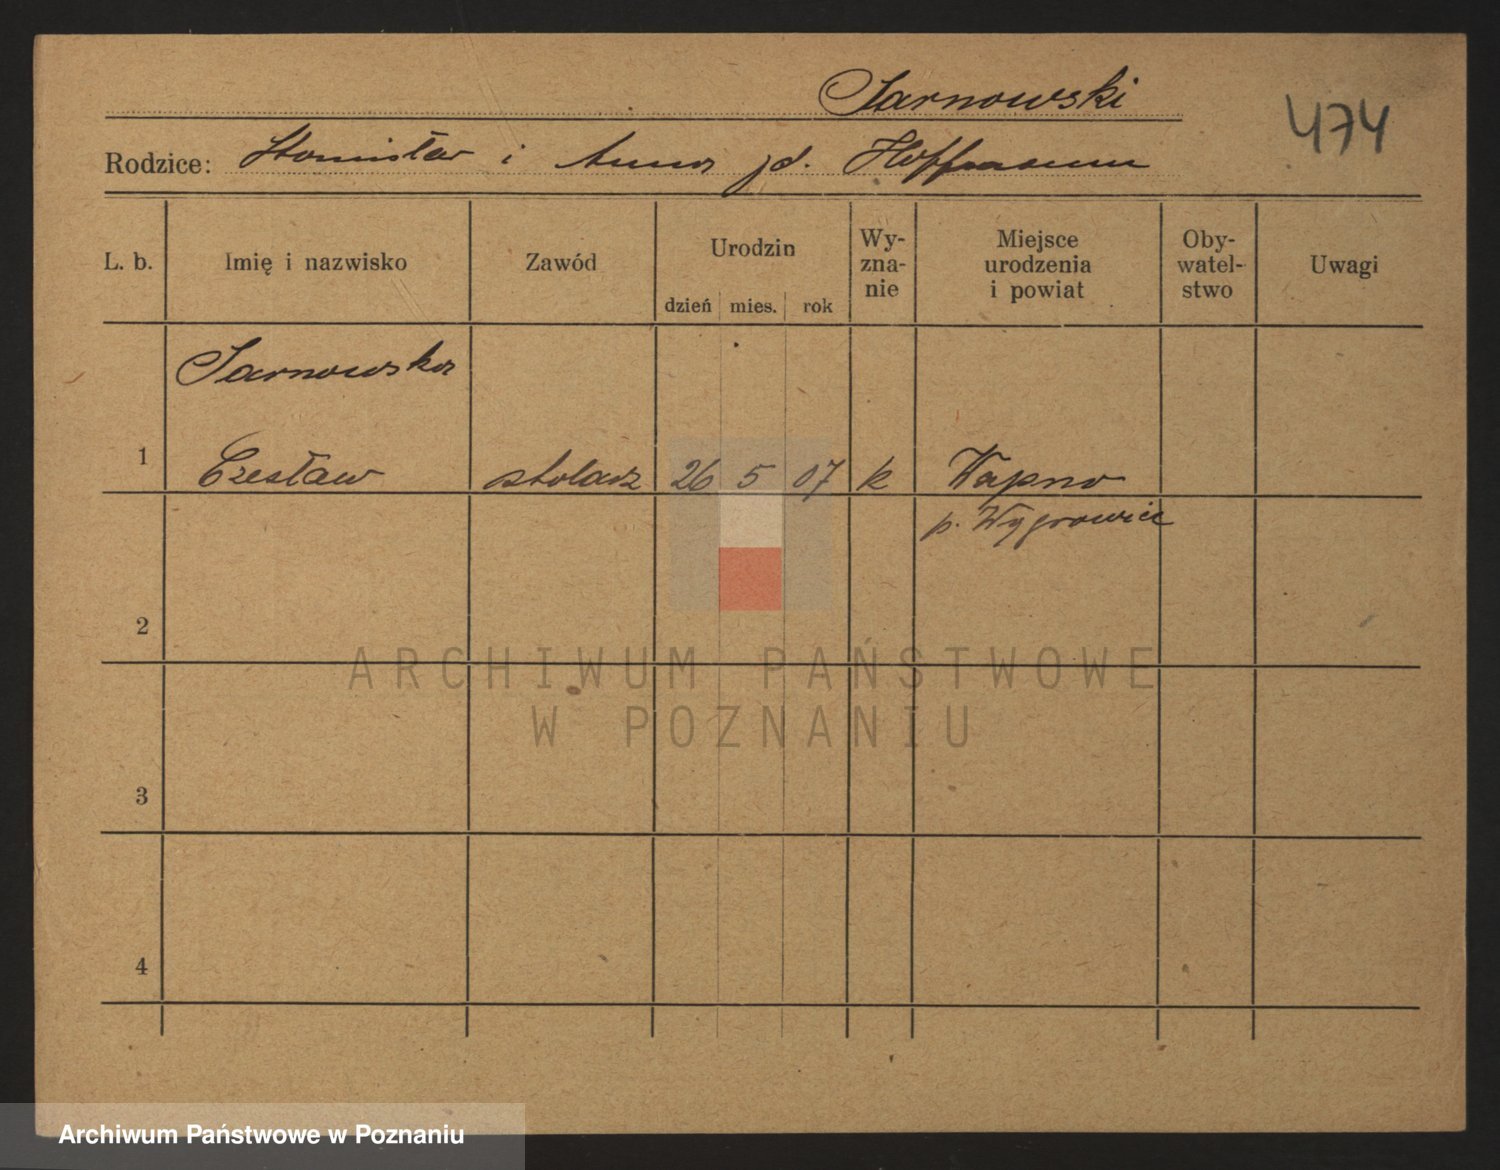 Jarnowski
474
Rodzice: Stanisław i Anna jd. Hoffmann
L. b. Imię i nazwisko Zawód Urodzin dzień mies. rok Wy-zna-nie Miejsce urodzenia i powiat Oby-watel-stwo Uwagi
Jarnowska
1 Czesław stolarz 26 5 07 k Wapno
p. Wągrowiec
2
ARCHIWUM PAŃSTWOWE
W POZNANIU
3
4
Archiwum Państwowe w Poznaniu